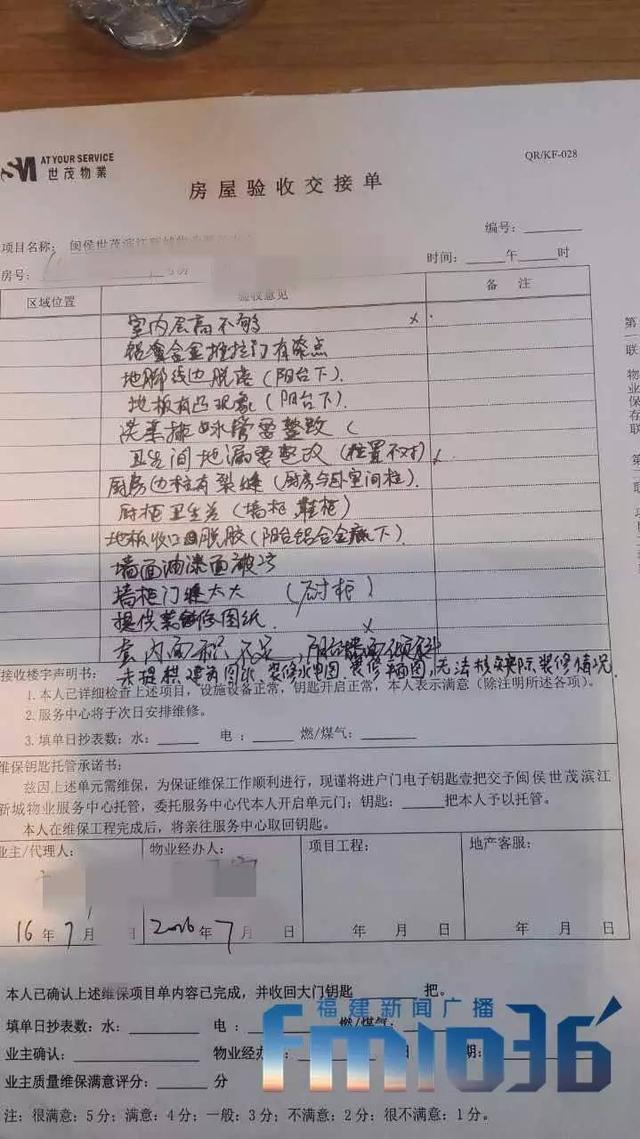 SM AT YOUR SERVICE
世茂物業
QR/KF-028
房屋验收交接单
编号：
项目名称： 闽侯世茂滨江新城
房号：
时间： 午 时
区域位置 验收意见 备 注
室内层高不够 ×
铝合金推拉门有染点
地脚线边脱落（阳台下）.
地板有凸现象（阳台下）.
洗菜 水管需整改（
卫生间地漏要整改（位置不对）
厨房边柱有裂缝（厨房与卧室间柱）.
厨柜卫生差（墙柜，鞋柜）
地板收口 脱胶（阳台铝合金底下）.
墙面油漆面破
墙柜门缝太大 （厨柜）
提供装修图纸 ×
室内面积不足，阳台墙面倾斜
未提供建筑图纸、装修水电图、装修 图，无法核实实际装修情况.
接收楼宇声明书：
1. 本人已详细检查上述项目，设施设备正常，钥匙开启正常，本人表示满意（除注明所述各项）。
2.服务中心将于次日安排维修。
3. 填单日抄表数：水： 电： 燃/煤气：
维保钥匙托管承诺书：
兹因上述单元需维保，为保证维保工作顺利进行，现谨将进户门电子钥匙壹把交予闽侯世茂滨江
新城物业服务中心托管，委托服务中心代本人开启单元门；钥匙： 把本人予以托管。
本人在维保工程完成后，将亲往服务中心取回钥匙。
业主/代理人： 物业经办人： 项目工程： 地产客服：
16年7月 日 2016年7月 日 年 月 日 年 月 日
本人已确认上述维保项目单内容已完成，并收回大门钥匙 把。
填单日抄表数：水： 电： 燃/煤气：
业主确认： 物业经办 日 期：
业主质量维保满意评分： 分
注：很满意：5分；满意：4分；一般：3分；不满意：2分；很不满意：1分。
第一联 物业保存联 第
福建新闻广播
fm1036